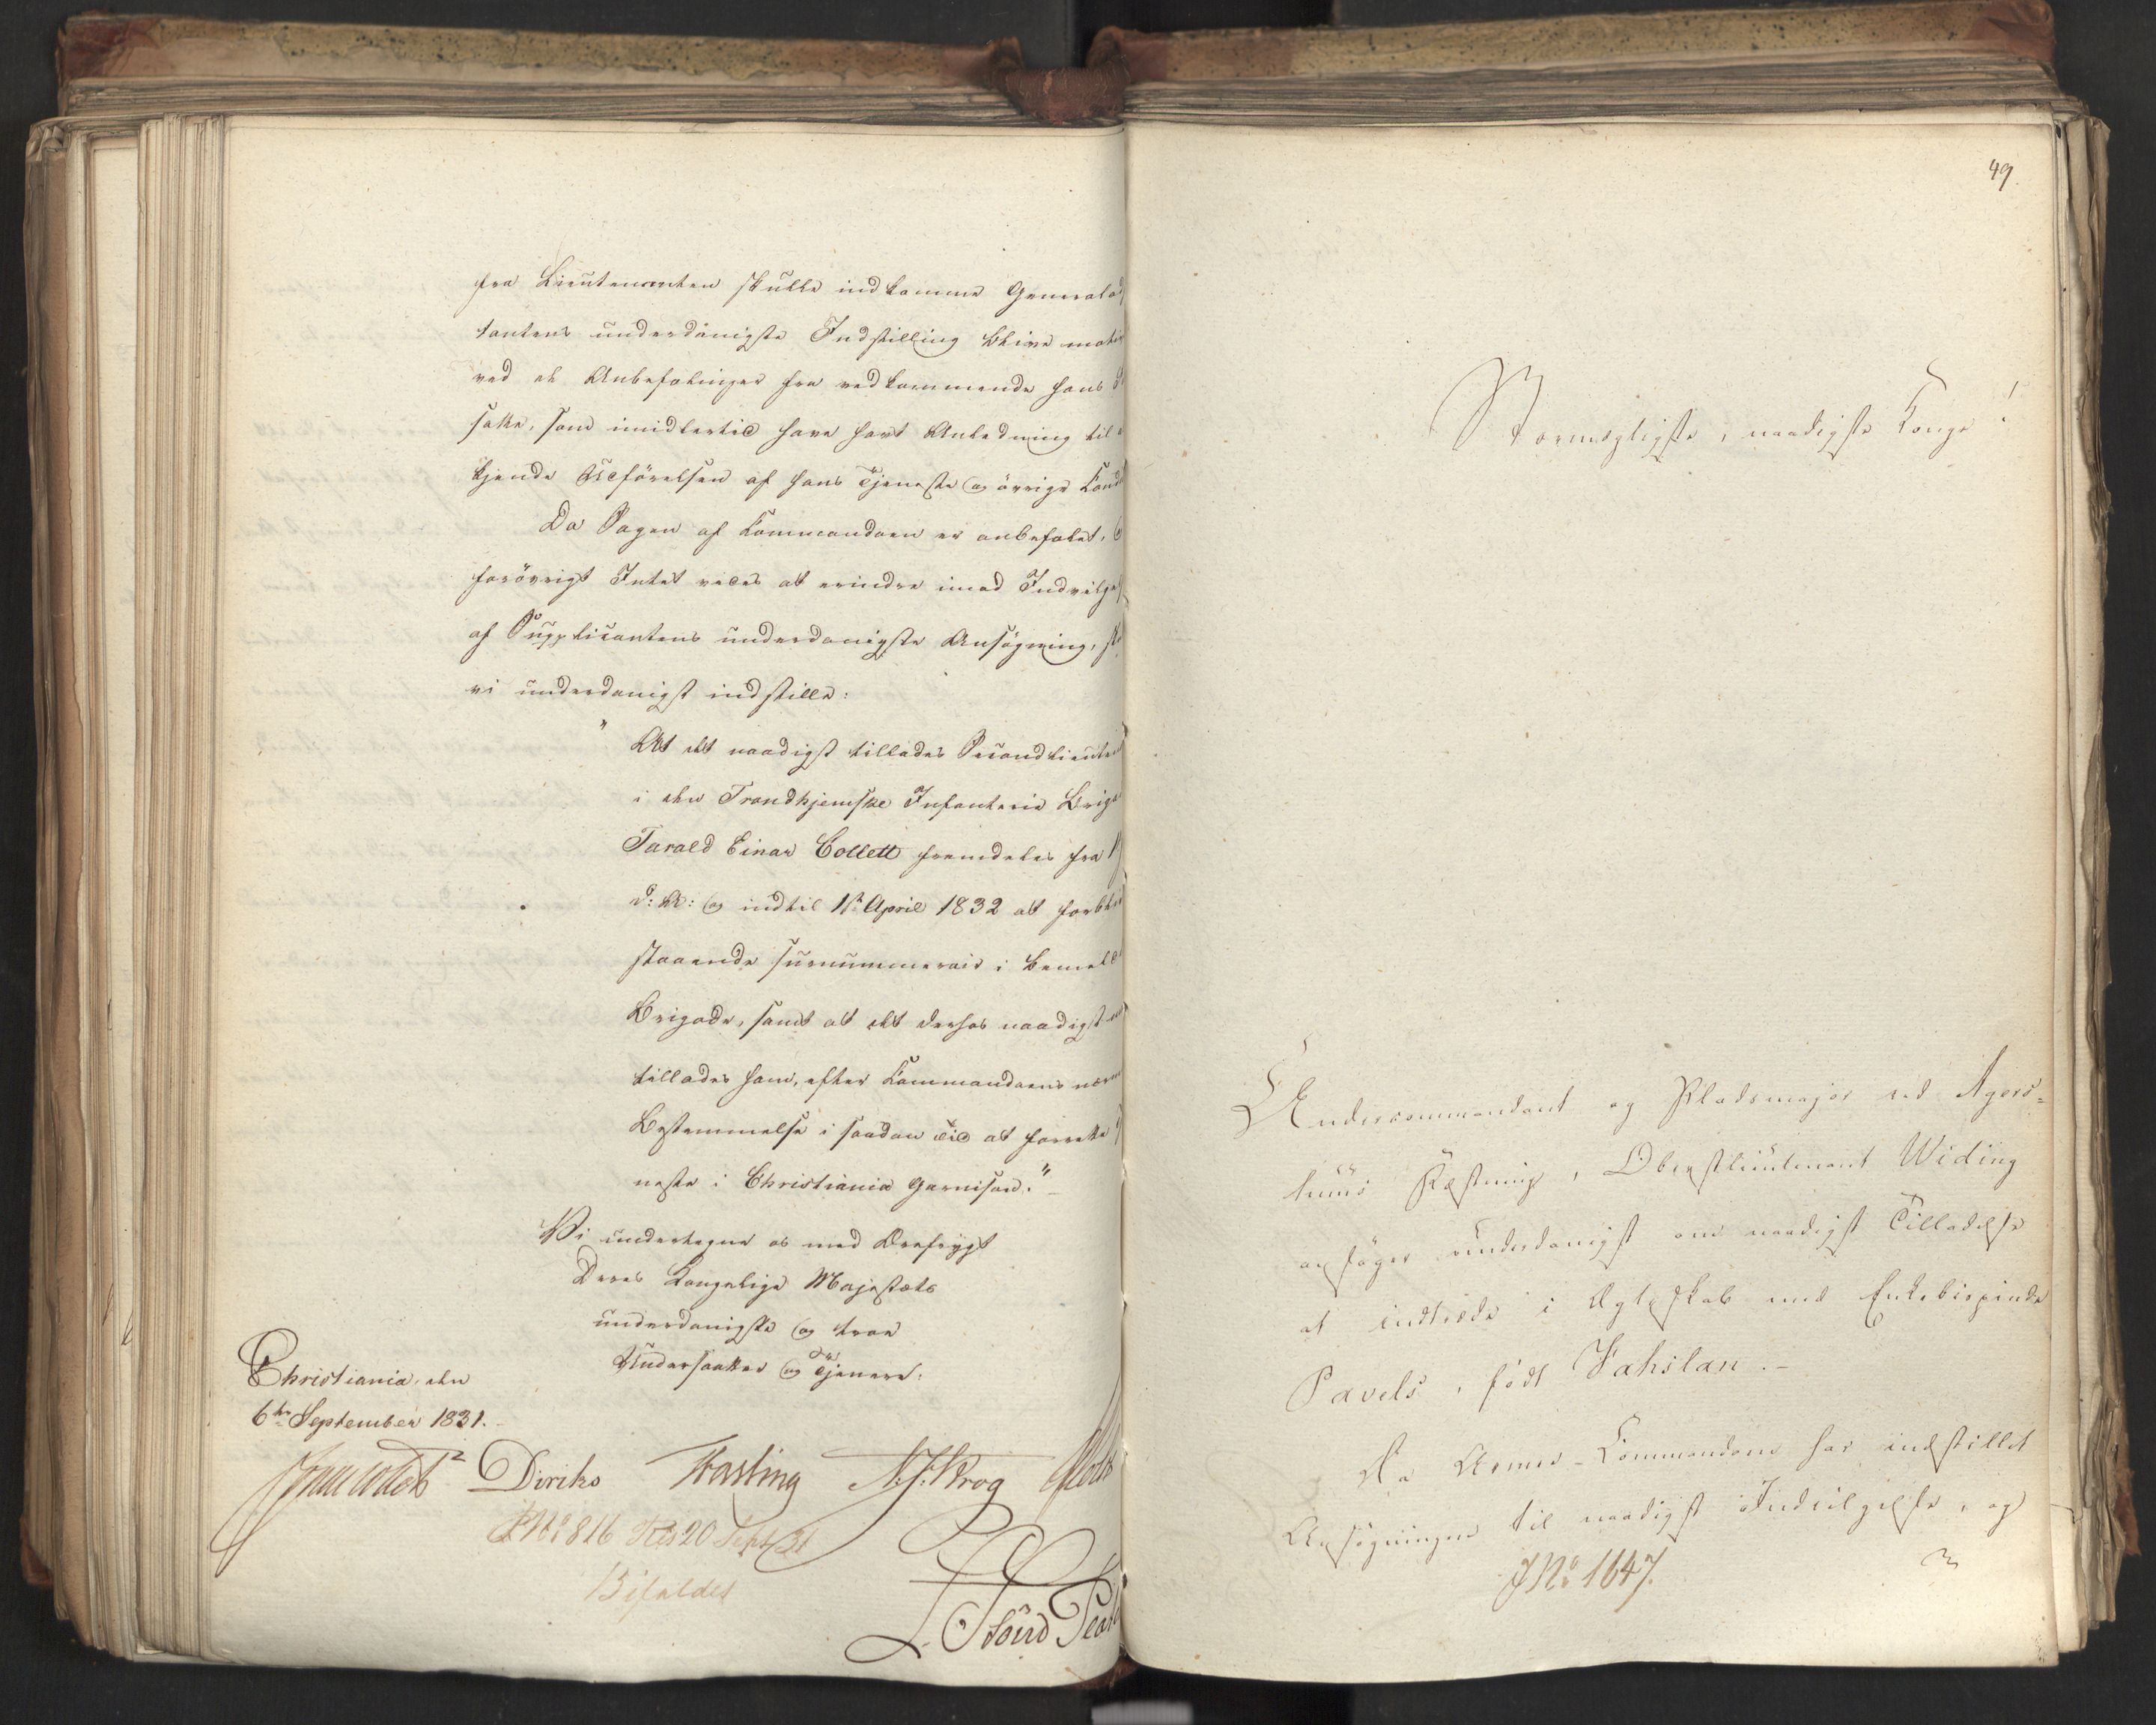 fra Lieutenanten skulle indkomme Generalad
tantens underdanigste Indstilling blive
ved de Anbefalinger fra vedkommende hans
satte, som imidlertid have havt Anledning til
kjende Udførelsen af hans Tjeneste og övrige Cond
Da Sagen af Commandoen er anbefalet,
forövrigt Intet vides at erindre imod Indvilge
af Supplicantens underdanigste Ansögning,
vi underdanigst indstille:
"At det naadigst tillades Secondlieuten
i den Trondhjemske Infanterie Briga
Tarald Einar Collett fremdeles fra
d: A: og indtil 1ste April 1832 at forbli
staaende surnummerair i bemeld
Brigade, samt at det derhos naadigst
tillades ham, efter Commandoens nærm
Bestemmelse i saadan Tid at forrette
neste i Christiania Garnison."_
Vi undertegne os med Ærefrygt
Deres Kongelige Majestæts
underdanigste og troe
Undersaatter og Tjenere:
Christiania, den
6te September 1831.
Diriks Fasting Krog
JNo 816 Res 20 Sept 31
Bifaldes
49.
Stormægtigste, naadigste Konge!
Undercommandant og Pladsmajor ved Agers=
huus Fæstning, Oberstlieutenant Wideing
ansöger underdanigst om naadigst Tilladelse
at indtræde i Ægteskab med Enkebispinde
Pavels, födt Vahslan.-
Da Armee-Commandoen har indstillet
Ansögningen til naadigst Indvilgelse, og
JNo 1647.